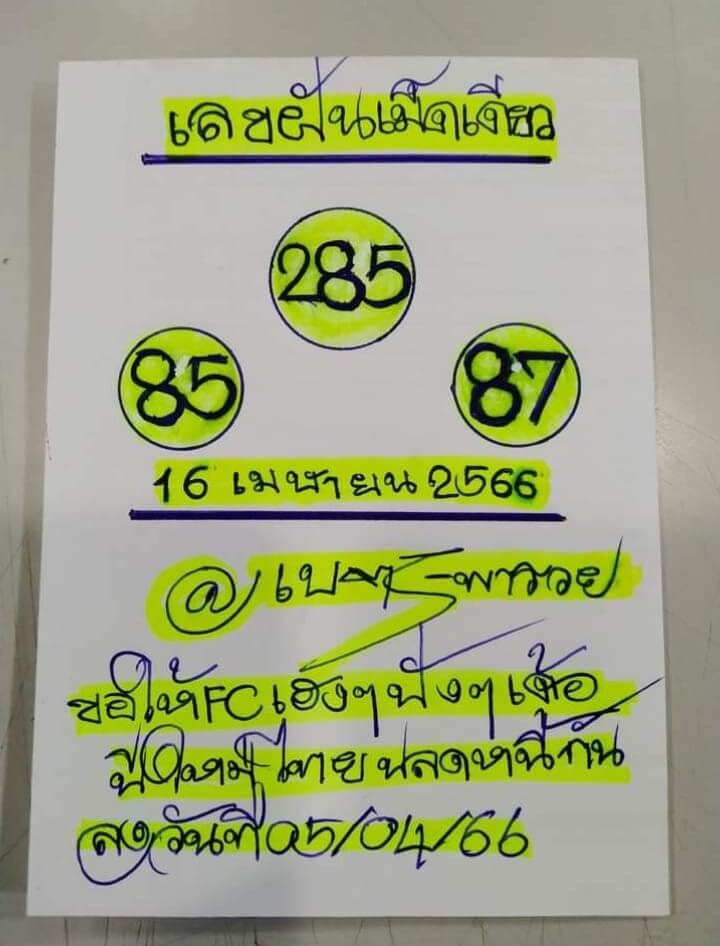 เลขฝันเม็ดเดียว
285
85 87
16 เมษายน 2566
@ เบนซ์ พารวย
ขอให้ FC เฮงๆ ปังๆ เด้อ
ปีใหม่ไทยปลดหนี้กัน
ลงวันที่ 05/04/66